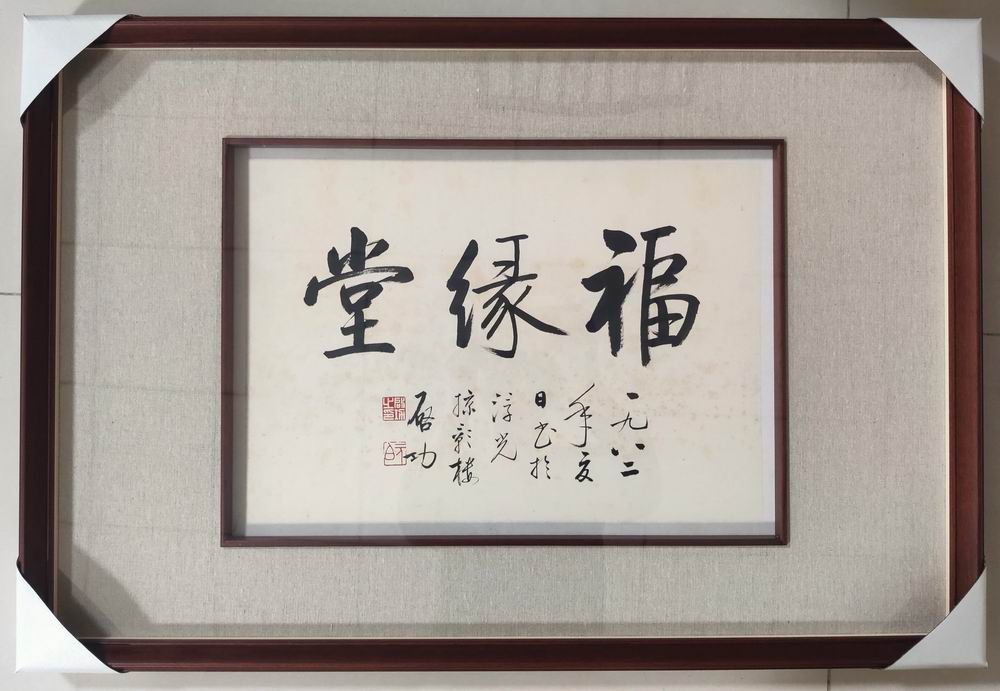 福缘堂
一九八二
年夏
日书於
浮光
掠影楼
启功